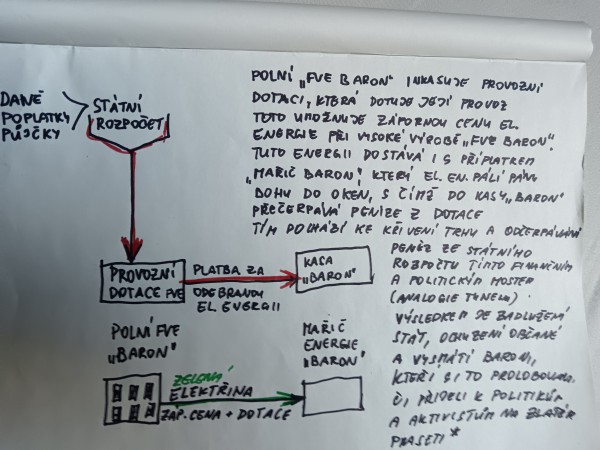 POLNÍ „FVE BARON" INKASUJE PROVOZNÍ
DOTACI, KTERÁ DOTUJE JEJÍ PROVOZ
TOTO UMOŽŇUJE ZÁPORNOU CENU EL.
ENERGIE PŘI VYSOKÉ VÝROBĚ „FVE BARON".
TUTO ENERGII DOSTÁVÁ I S PŘÍPLATKEM
„MAŘIČ BARON", KTERÝ EL. EN. PÁLÍ PÁNU
BOHU DO OKEN, S ČÍMŽ DO KASY „BARON"
PŘEČERPÁVÁ PENÍZE Z DOTACE
TÍM DOCHÁZÍ KE KŘIVENÍ TRHU A ODČERPÁVÁNÍ
PENĚZ ZE STÁTNÍHO
ROZPOČTU TÍMTO FINANČNÍM
A POLITICKÝM MOSTEM
(ANALOGIE TUNELU)
VÝSLEDKEM JE ZADLUŽENÍ
STÁT, OCHUZENÍ OBČANÉ
A VYSMÁTÍ BARONI,
KTEŘÍ SI TO PROLOBOVALI
ČI PŘIDELI K POLITIKŮM
A AKTIVISTŮM NA ZLATÉM
PRASETI*
DANĚ
POPLATKY
PŮJČKY
STÁTNÍ
ROZPOČET
PROVOZNÍ
DOTACE FVE
PLATBA ZA
ODEBRANOU
EL ENERGII
KASA
„BARON"
POLNÍ FVE
„BARON"
ZELENÁ
ELEKTŘINA
ZÁP. CENA + DOTACE
MAŘIČ
ENERGIE
„BARON"